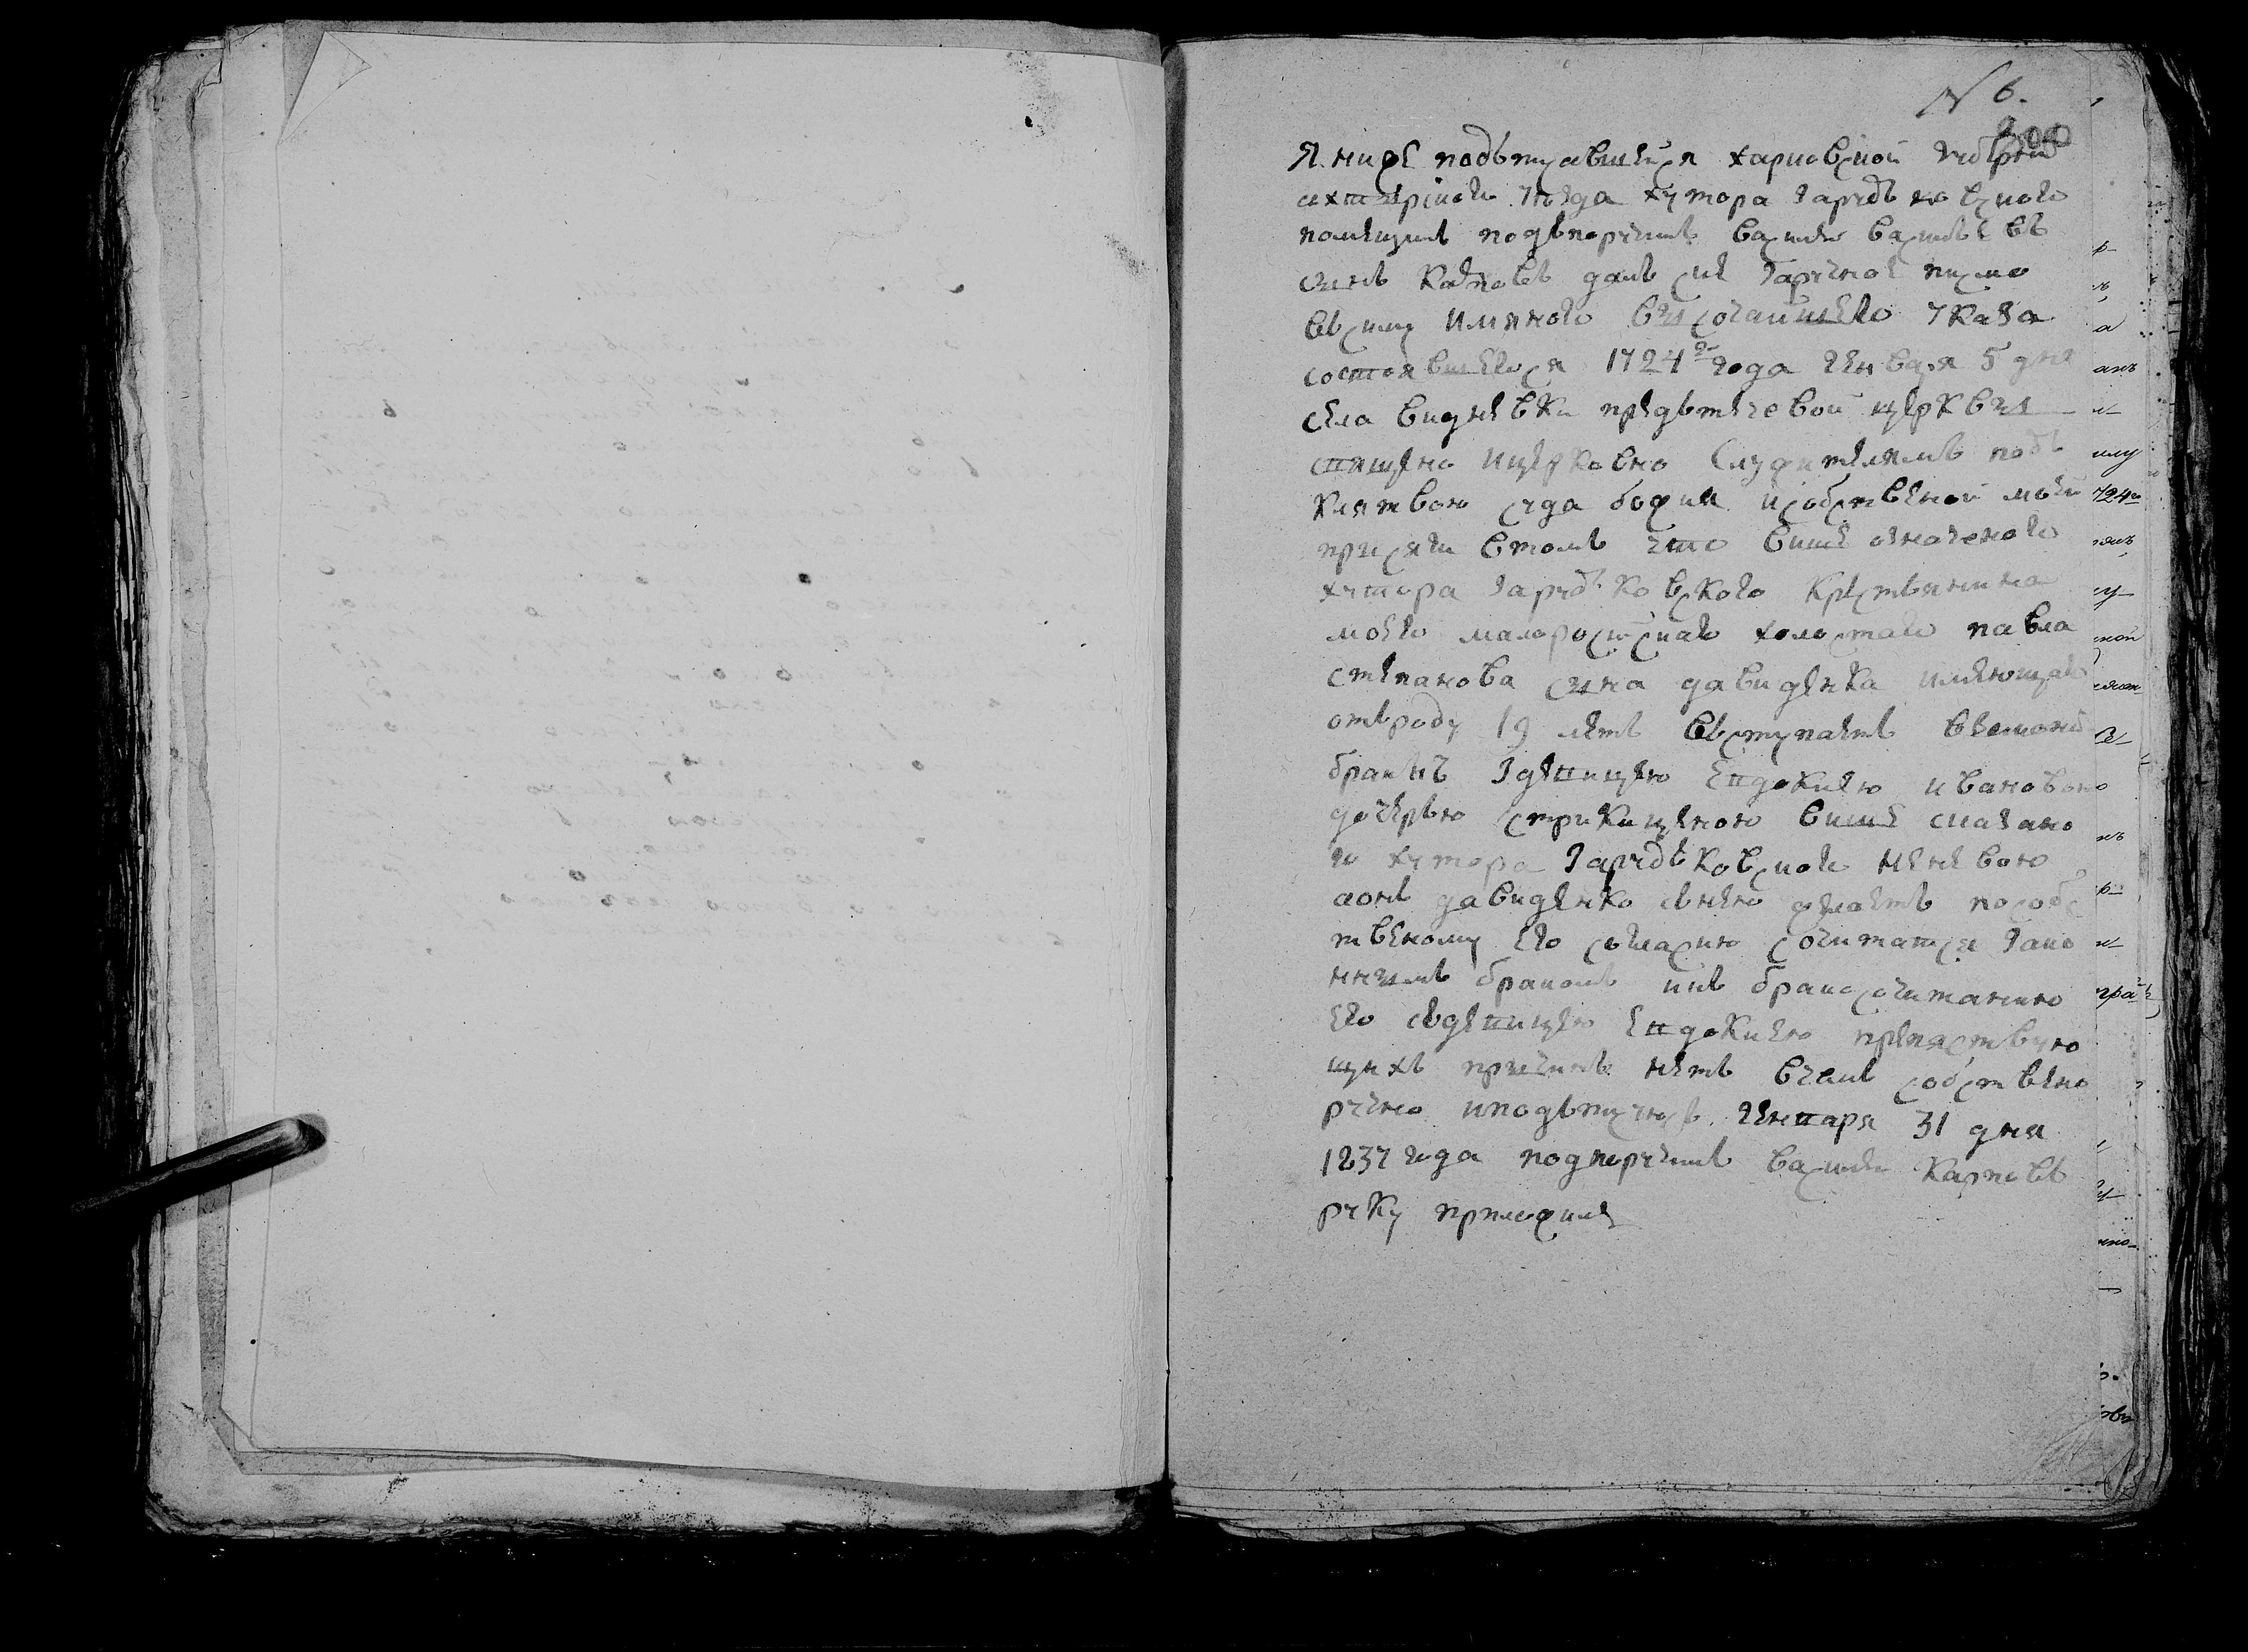 N 6.
Я ниже подъписавшейся харковской губерни
ахтырской уезда хутора Зарудъковского
помещикъ подъпорутчикъ василеи васильевъ
синъ Карповъ далъ сие Заручное писмо
въсилу Имяного височаишего указа
состоявшегося 1724го года Генваря 5 дня
села видневки предътечевой церквы
священо ицерковно служителямъ подъ
клятвою суда божия исобственой моей
присяги втомъ что више означеного
хутора Зарудъковского Крестьянина
моего малоросийского холостаго павла
степанова сына давиденка имеющаго
отъроду 19 летъ въступаетъ взаконой
бракъ Здевицею Евдокиею ивановою
дочерью више сказано
го хутора Зарудъковского
аонъ давиденко снею желаетъ пособс
твеному его согласию сочитатся Зако
ннымъ бракомъ икъ бракосочитанию
его сдевицею Евдокиею препяствую
щихъ причинъ нетъ вчемъ собствено
ручно иподъписуюсь Генваря 31 дня
1837 года подпорутчикъ василеи Карповъ
руку приложилъ